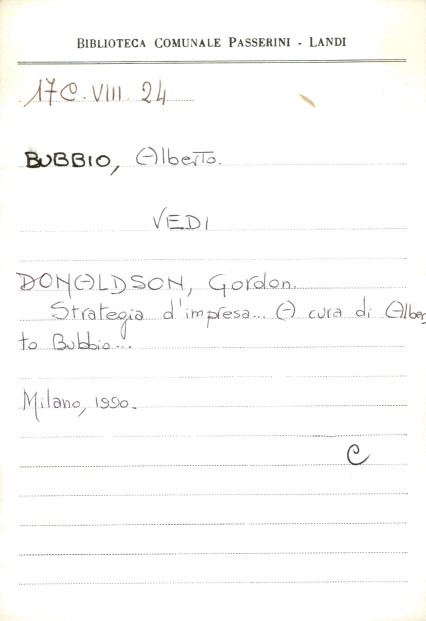 BIBLIOTECA COMUNALE PASSERINI - LANDI
17C.VIII.24
BUBBIO, Alberto.
VEDI
DONALDSON, Gordon.
Strategia d'impresa... A cura di Alber
to Bubbio...
Milano, 1990.
C